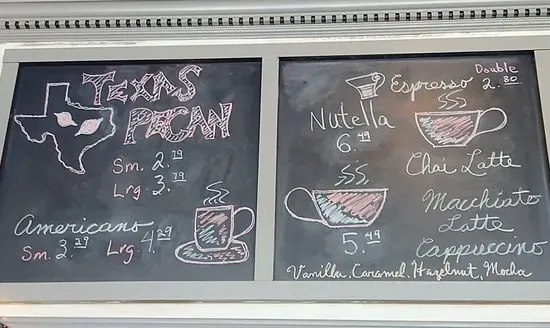 TEXAS
PECAN
Sm. 2.79
Lrg 3.79
Americano
Sm. 3.29 Lrg. 4.29
Double
Espresso 2.80
Nutella
6.49
Chai Latte
Macchiato
Latte
5.49
Cappuccino
Vanilla, Caramel, Hazelnut, Mocha